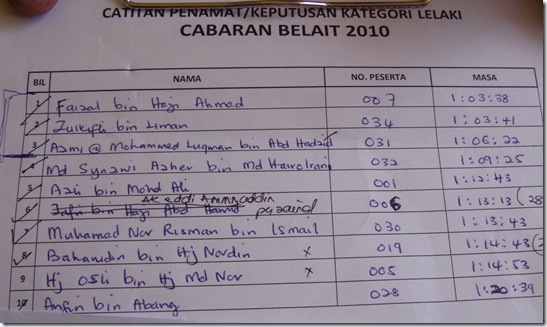 CATITAN PENAMAT/KEPUTUSAN KATEGORI LELAKI
CABARAN BELAIT 2010
BIL NAMA NO. PESERTA MASA
1 Faizal bin Haji Ahmad 007 1:03:38
2 Zulkifli bin Liman 034 1:03:41
3 Azmi @ Mohammed Luqman bin Abd Hadzid 031 1:06:22
4 Md Syazwi Azher bin Md Hairolrani 032 1:09:25
5 Azli bin Mohd Ali 001 1:12:43
Ak eddi
6 Jafin bin Haji Abd Hamid 006 1:13:13 (28
7 Muhamad Nor Risman bin Ismail 030 1:13:43
8 Bahanudin bin Hj Nordin x 019 1:14:43
9 Hj OSli bin Hj Md Nor x 005 1:14:53
10 Anfin bin Abang 028 1:20:39